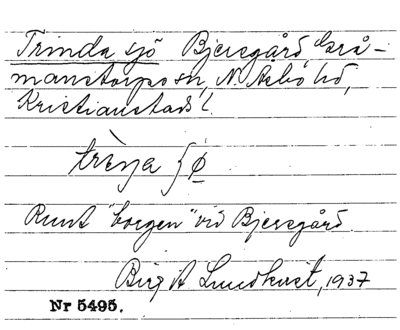 Trinda sjö Bjersgård, Grå-
manstorps sn, N. Åsbo hd,
Kristianstads l.
trèna ʃø
Runt "borgen" vid Bjersgård
Birgit Lundkvist, 1937
Nr 5495.